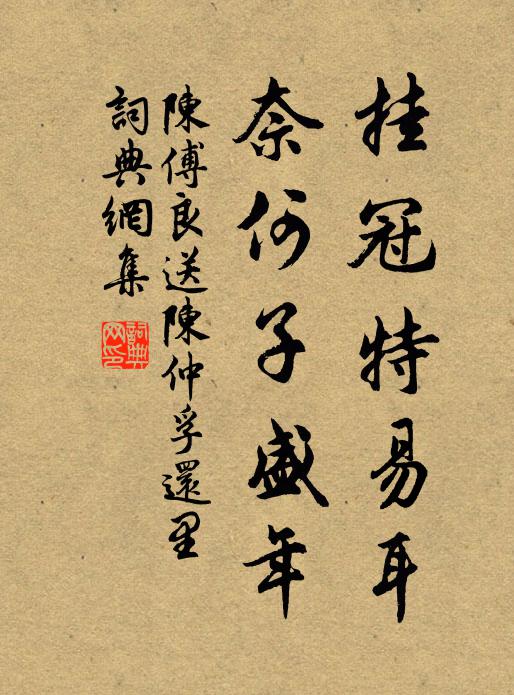 挂冠特易耳
奈何子盛年
陳傅良送陳仲孚還里
詞典網集
詞典網印